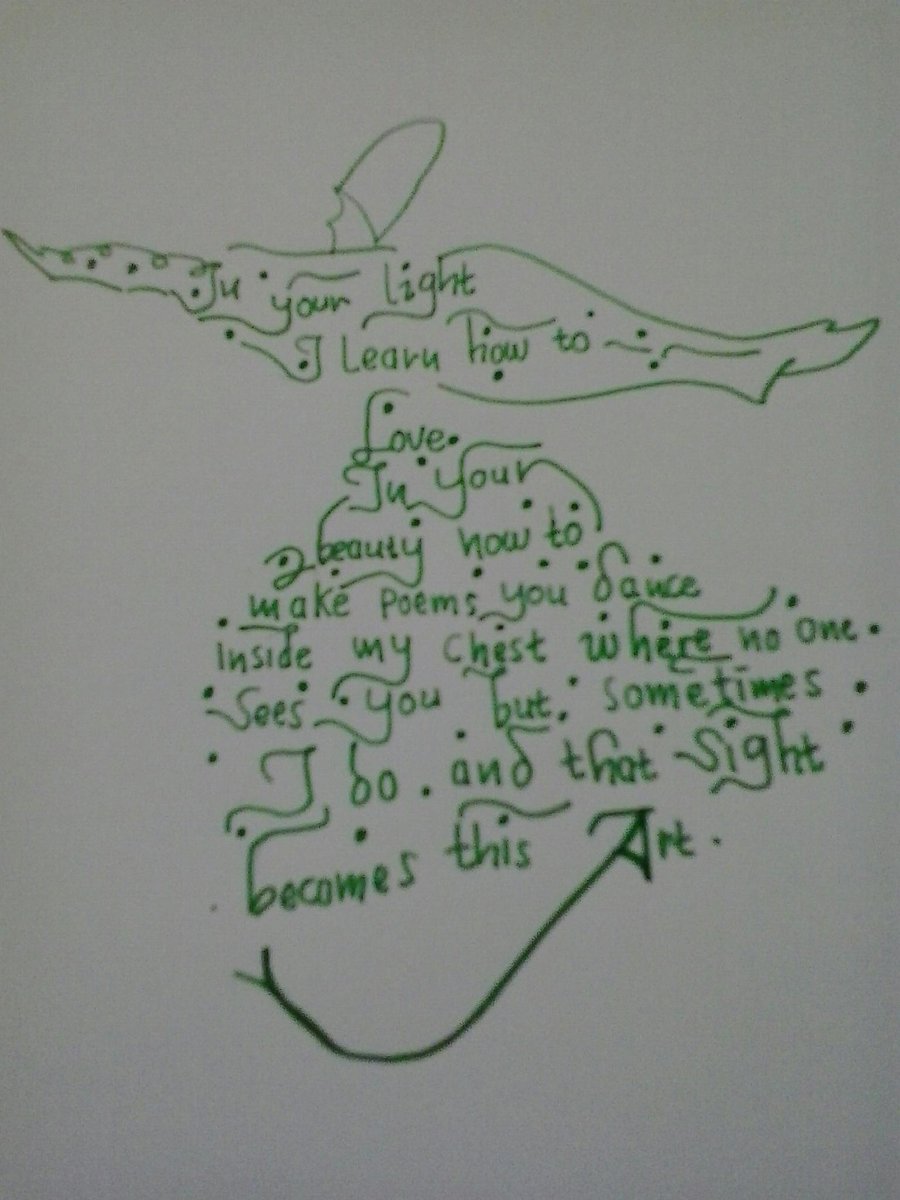 In your light
I Learn how to
Love.
In your
beauty how to
make poems you dance
inside my chest where no one.
Sees you but. Sometimes
I do. and that Sight
becomes this Art.